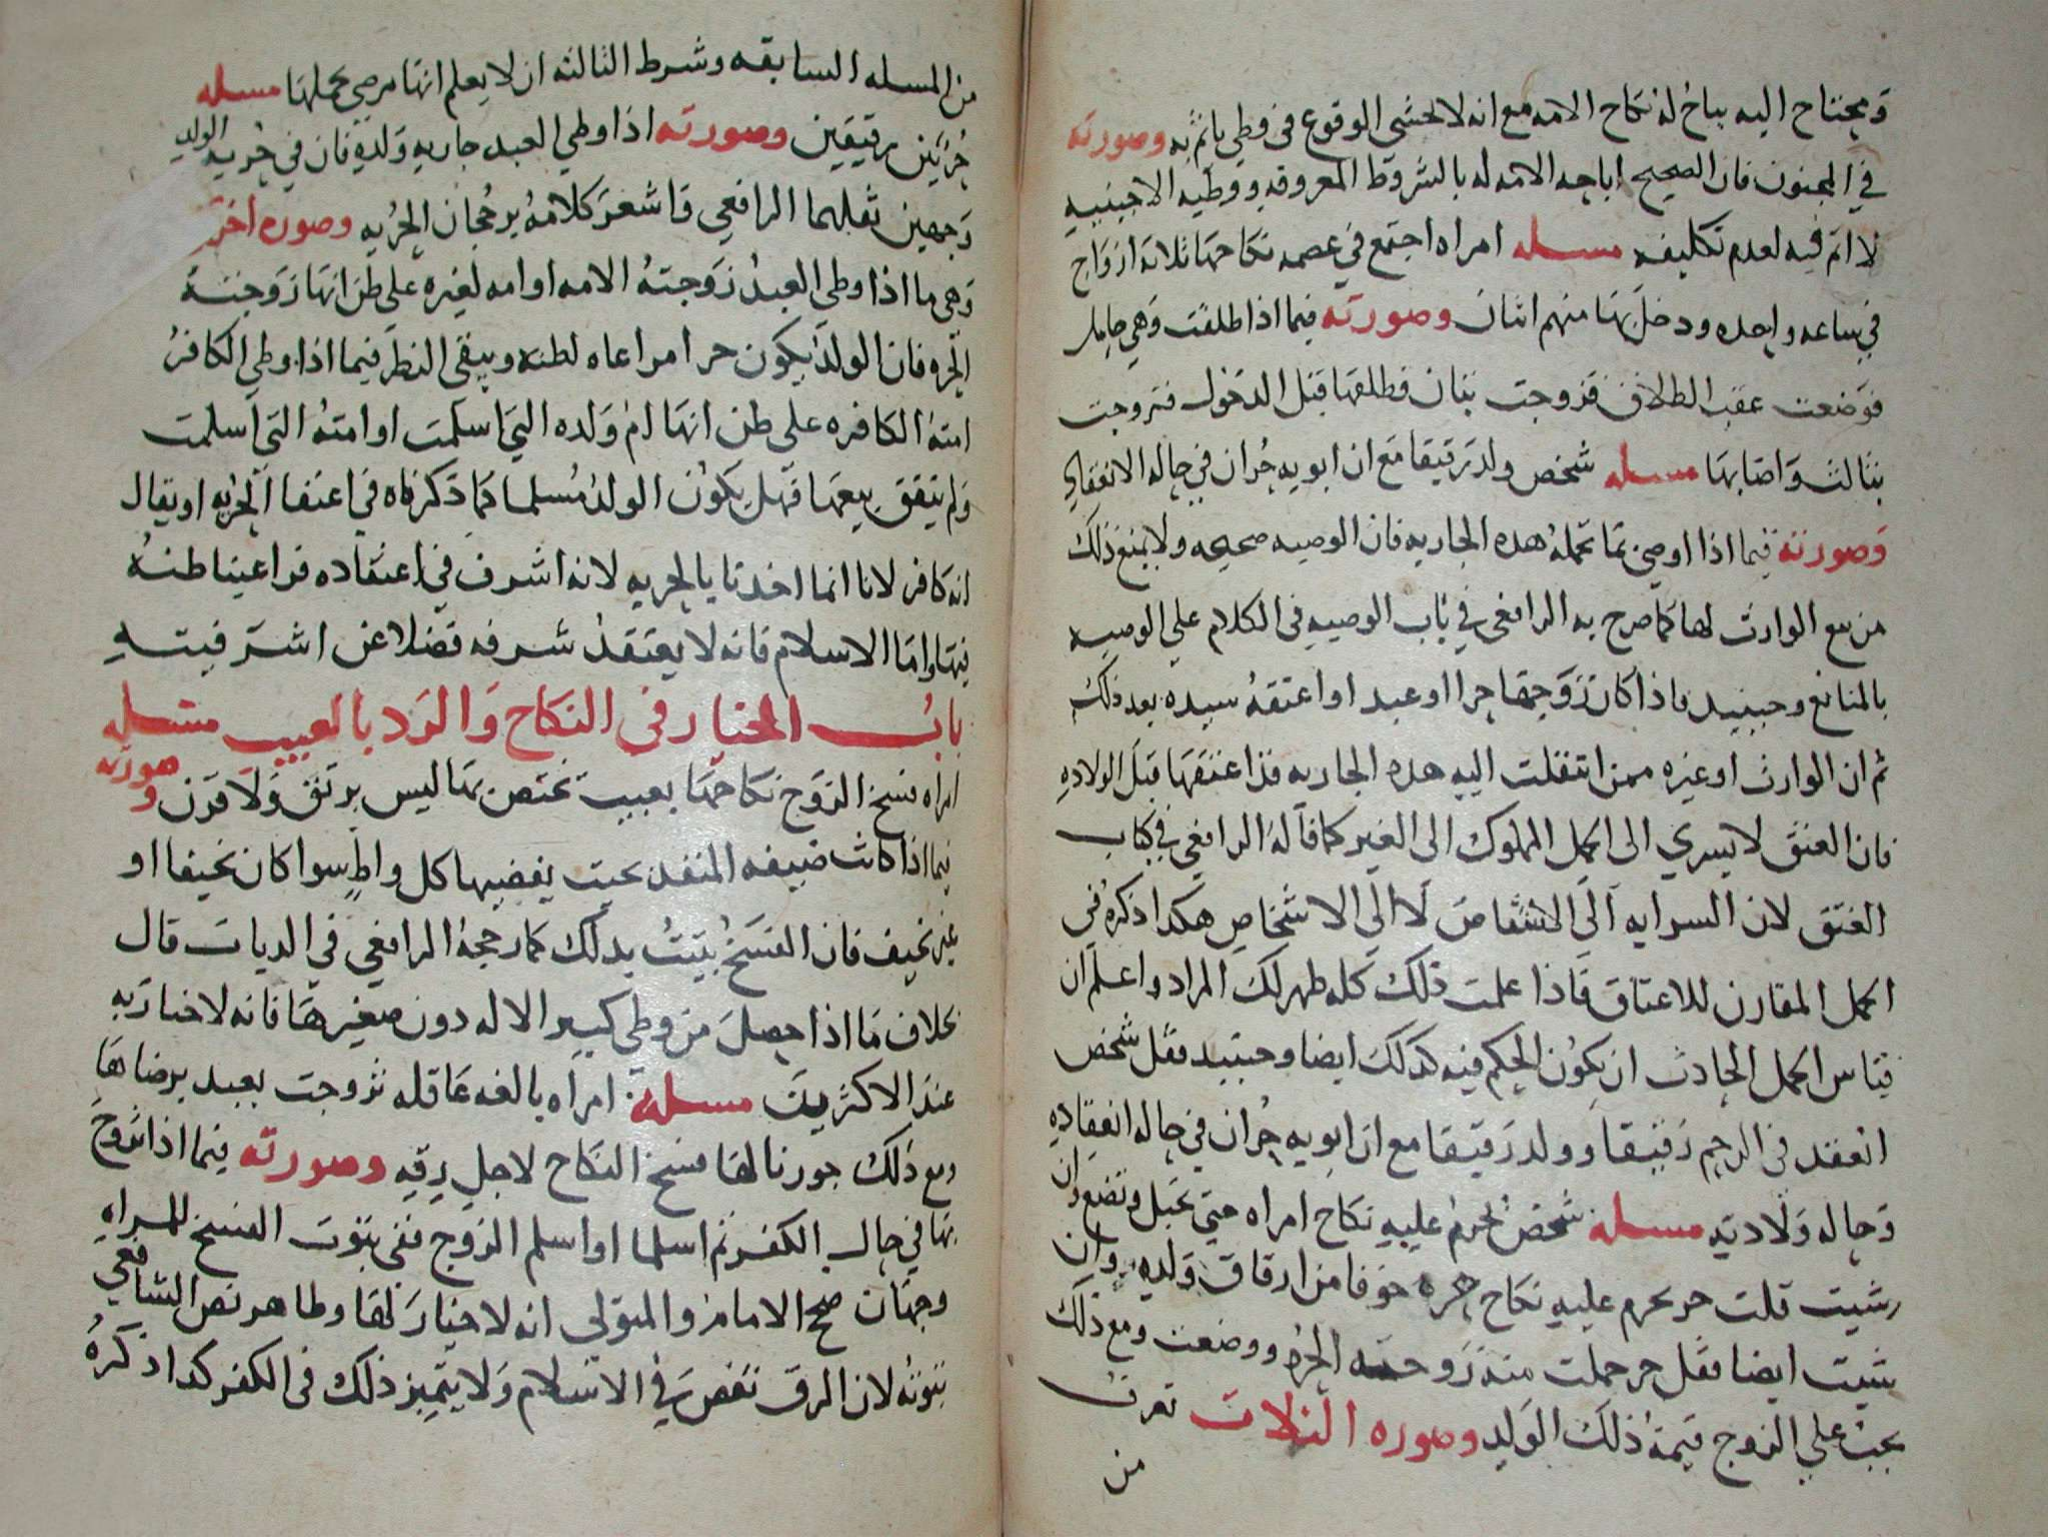 ومحتاح اليه يباح له نكاح الامه مع انه لا يخشى الوقوع في وطي ياثم به وصورته
في المجنون فان الصحيح اباحه الامه له بالشروط المعروفه ووطيه الاجنبيه
لا اثم فيه لعدم تكليفه مسله امراه اجتمع في عصمه نكاحها ثلاثه ازواج
في ساعه واحده ودخل بها منهم اثنان وصورته فيما اذا طلقت وهي حامل
فوضعت عقب الطلاق فتزوجت بثان فطلقها قبل الدخول فتزوجت
بثالث واصابها مسله شخص ولد رقيقا مع ان ابويه حران في حاله الانعقاد
وصورته فيما اذا اوصي بما تحمله هذه الجاريه فان الوصيه صحيحه ولا يمنع ذلك
من بيع الوارث لها كما صرح به الرافعي في باب الوصيه في الكلام علي الوصيه
بالمنافع وحينيد فاذا كان زوجها حرا او عبد او اعتقه سيده بعد ذلك
ثم ان الوارث او غيره ممن انتقلت اليه هذه الجاريه قد اعتقها قبل الولاده
فان العتق لا يسري الى الحمل المملوك الى الغير كما قاله الرافعي في كتاب
العتق لان السرايه الى الاشقاص لا الى الاشخاص هكدا ذكره في
الحمل المقارن للاعتاق فاذا علمت ذلك كله ظهر لك المراد واعلم ان
قياس الحمل الحادث ان يكون الحكم فيه كدلك ايضا وحينيد فقل شخص
انعقد في الرحم رقيقا وولد رقيقا مع ان ابويه حران في حاله انعقاده
وحاله ولادته مسله شخص يحرم عليه نكاح امراه حتى تحبل وتضع وان
شيت قلت حر يحرم عليه نكاح حره خوفا من ارقاق ولده وان
شيت ايضا فقل حر حملت منه زوجته الحره ووضعت ومع ذلك
يجب علي الزوج قيمة ذلك الولد وصوره الثلاث تعرف
من
من المسله السابقه وشرط الثالثه ان لا يعلم انها مرضي بحملها مسله
حر بين رقيقين وصورته اذا وطي العبد جاريه ولده فان في حريه الولد
وجهين نقلهما الرافعي واشعر كلامه برجحان الحريه وصوره اخرى
وهي ما اذا وطي العبد زوجته الامه او امه لغيره على ظن انها زوجته
الحره فان الولد يكون حرا مراعاه لظنه ويبقى النظر فيما اذا وطي الكافر
امته الكافره على ظن انها ام ولده التي اسلمت او امته التي اسلمت
ولم يتفق بيعها فهل يكون الولد مسلما كما ذكرناه في اعتقاا الحريه او يقال
انه كافر لانا انما اخدنا بالحريه لانه اشرف في اعتقاده فراعينا ظنه
فيها واما الاسلام فانه لا يعتقد شرفه فضلا عن اشرفيته
باب الخيار في النكاح والرد بالعيب مسله
امراه فسخ الزوج نكاحها بعيب تختص بها ليس برتق ولا قرن وصورته
فيما اذا كانت ضيقه المنفذ بحيث يفضيها كل واطي سوا كان نحيفا او
غير نحيف فان الفسخ يثبت بدلك كما رجحه الرافعي في الديات قال
بخلاف ما اذا حصل من وطي كبير الاله دون صغيرها فانه لا خيار به
عند الاكثرين مسله امراه بالغه عاقله تزوجت بعبد برضاها
ومع ذلك جوزنا لها فسخ النكاح لاجل رقه وصورته فيما اذا تزوج
بها في حال الكفر ثم اسلما او اسلم الزوج ففى ثبوت الفسخ للمراه
وجهان صحح الامام والمتولي انه لا خيار لها وظاهر نص الشافعي
ثبوته لان الرق نقص في الاسلام ولا يتميز ذلك في الكفر كدا ذكره